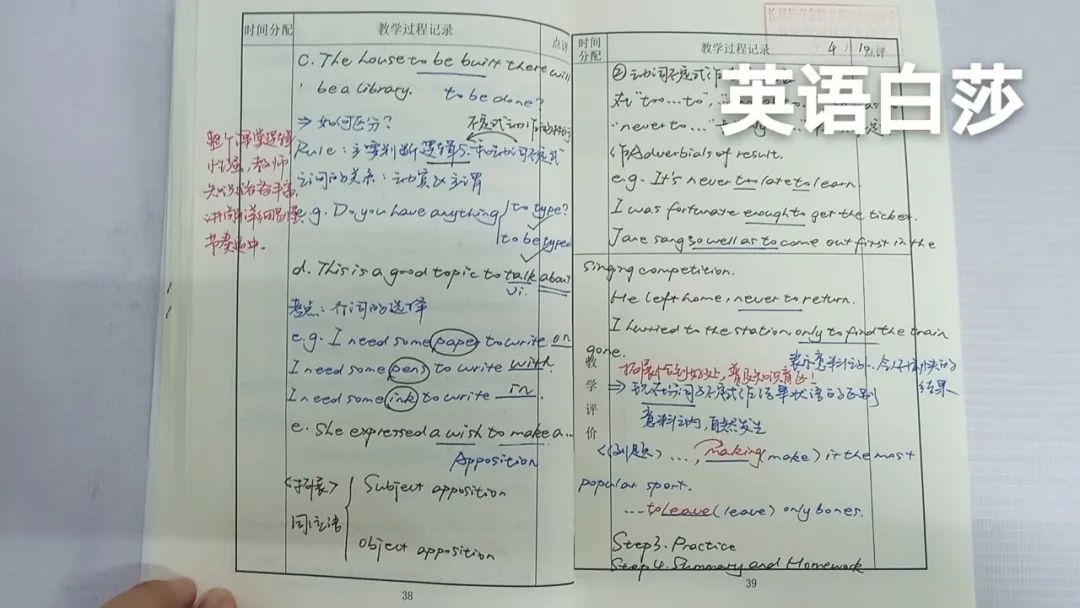 时间分配 教学过程记录 点评
c. The house to be built there will
be a library. to be done?
⇒ 如何区分?
Rule: 主要判断逻辑S.和动词不定式
之间的关系: 动宾或主谓
e.g. Do you have anything to type?
to be typed
d. This is a good topic to talk about
vi.
考点: 介词的选择
e.g. I need some paper to write on
I need some pens to write with.
I need some ink to write in.
e. She expressed a wish to make a...
Apposition
<拓展>
同位语
Subject apposition
Object apposition
整个课堂逻辑
性强, 教师
知识内容丰富,
讲解详细易懂
节奏适中.
38
时间分配 教学过程记录 点评
4 19
英语白莎
② 动词不定式作
"never to..."
作Adverbials of result.
e.g. It's never too late to learn.
I was fortunate enough to get the ticket.
Jane sang so well as to come out first in the
singing competition.
He left home, never to return.
I hurried to the station only to find the train
gone.
表示意料之外、令人不愉快的
结果
⇒ 现在分词与不定式作结果状语的区别
意料之内, 自然发生
教学评价
<例题> ..., making (make) it the most
popular sport.
...to leave (leave) only bones.
Step 3. Practice
Step 4. Summary and Homework
39